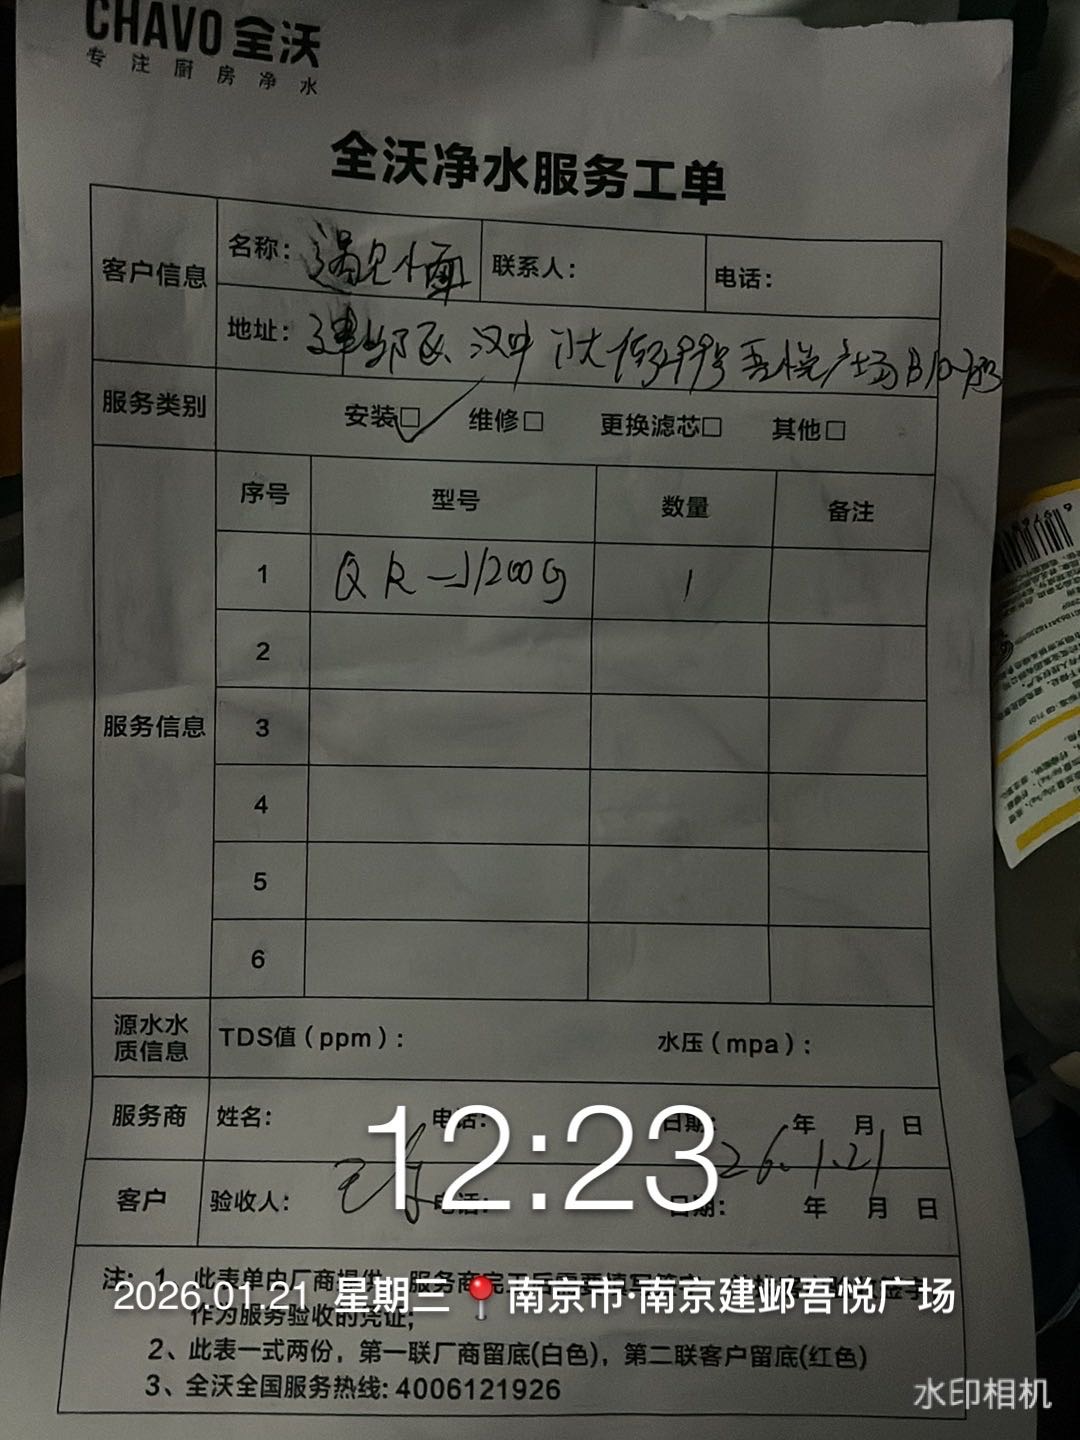 CHAVO 全沃
专注厨房净水
全沃净水服务工单
客户信息
名称：遇见小面
联系人：
电话：
地址：建邺区汉中门大街 号吾悦广场B
服务类别
安装□ 维修□ 更换滤芯□ 其他□
服务信息
序号 型号 数量 备注
1 1
2
3
4
5
6
源水水质信息
TDS值（ppm）： 水压（mpa）：
服务商 姓名： 电话： 日期： 年 月 日
26.1.21
客户 验收人： 电话： 日期： 年 月 日
12:23
注：1、此表单由厂商提供，服务商完工后需要填写
2026.01.21 星期三 南京市·南京建邺吾悦广场
作为服务验收的凭证；
2、此表一式两份，第一联厂商留底(白色)，第二联客户留底(红色)
3、全沃全国服务热线：4006121926
水印相机